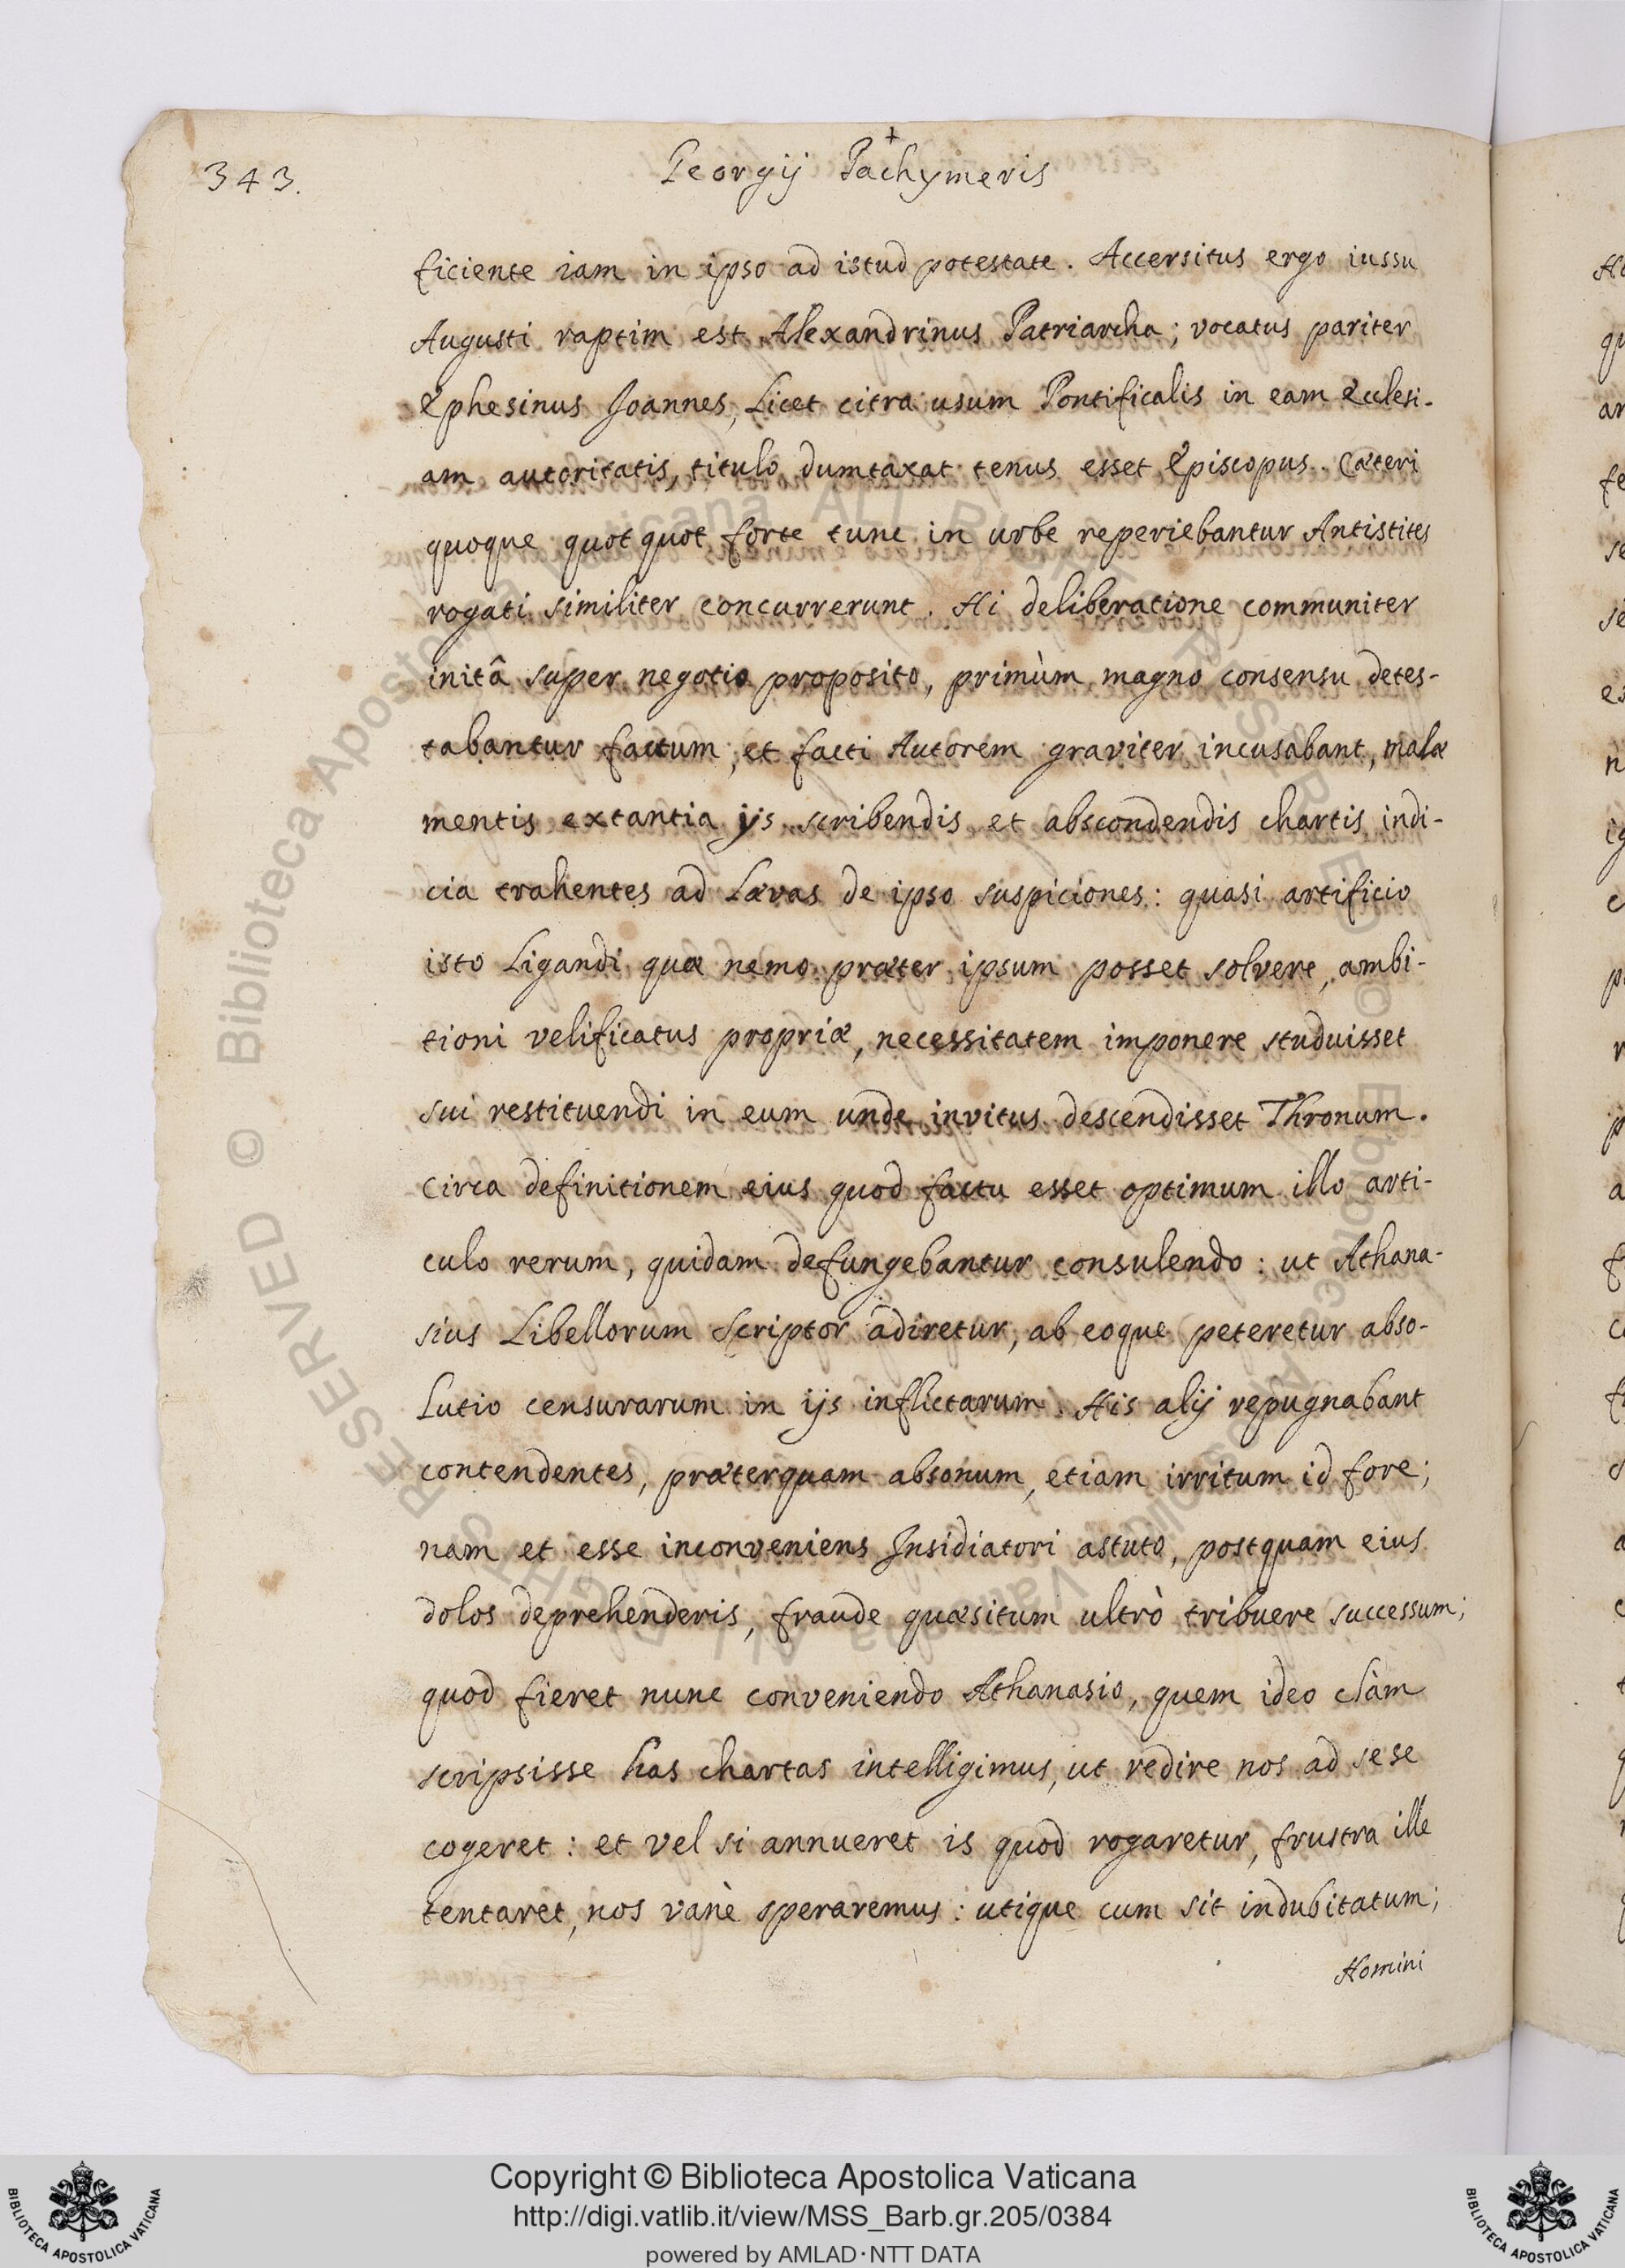 343.
Georgij Pachymeris
ficiente iam in ipso ad istud potestate. Accersitus ergo iussu
Augusti raptim est Alexandrinus Patriarcha; vocatus pariter
Ephesinus Joannes, Licet citra usum Pontificalis in eam Ecclesi-
am autoritatis, titulo dumtaxat tenus esset Episcopus. Cæteri
quoque quot quot forte tunc in urbe reperiebantur Antistites
rogati similiter concurrerunt. Hi deliberatione communiter
initâ super negotio proposito, primùm magno consensu detes-
tabantur factum, et facti Autorem graviter incusabant, malæ
mentis extantia ijs scribendis et abscondendis chartis indi-
cia trahentes ad Lævas de ipso suspiciones: quasi artificio
isto Ligandi quæ nemo præter ipsum posset solvere, ambi-
tioni velificatus propriæ, necessitatem imponere studuisset
sui restituendi in eum unde invitus descendisset Thronum.
Circa definitionem eius quod factu esset optimum illo arti-
culo rerum, quidam defungebantur consulendo: ut Athana-
sius Libellorum Scriptor adiretur, ab eoque peteretur abso-
Lutio censurarum in ijs inflictarum. His alij repugnabant
contendentes, præterquam absonum, etiam irritum id fore;
nam et esse inconveniens Insidiatori astuto, postquam eius
dolos deprehenderis, fraude quæsitum ultrò tribuere successum;
quod fieret nunc conveniendo Athanasio, quem ideo clàm
scripsisse has chartas intelligimus, ut redire nos ad sese
cogeret: et vel si annueret is quod rogaretur, frustra ille
tentaret, nos vanè speraremus: utique cum sit indubitatum;
Homini
Copyright © Biblioteca Apostolica Vaticana
http://digi.vatlib.it/view/MSS_Barb.gr.205/0384
powered by AMLAD·NTT DATA
BIBLIOTECA APOSTOLICA VATICANA
BIBLIOTECA APOSTOLICA VATICANA